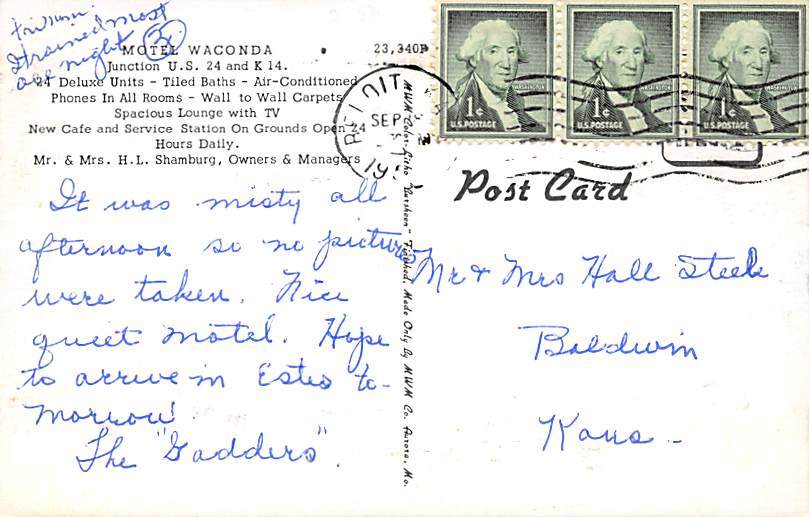 It rained most
all night
MOTEL WACONDA
23,340F
Junction U.S. 24 and K 14.
24 Deluxe Units - Tiled Baths - Air-Conditioned
Phones In All Rooms - Wall to Wall Carpets
Spacious Lounge with TV
New Cafe and Service Station On Grounds Open 24
Hours Daily.
Mr. & Mrs. H.L. Shamburg, Owners & Managers
It was misty all
afternoon so no pictures
were taken. Nice
quiet motel. Hope
to arrive in Estes to-
morrow!
The "Gadders".
MWM Color-Litho "Dursheen" Finished, Made Only By MWM Co. Aurora, Mo.
BELOIT
SEP
WASHINGTON
1¢
U.S. POSTAGE
WASHINGTON
1¢
U.S. POSTAGE
WASHINGTON
1¢
U.S. POSTAGE
Post Card
Mr & Mrs Hall Steele
Baldwin
Kans -